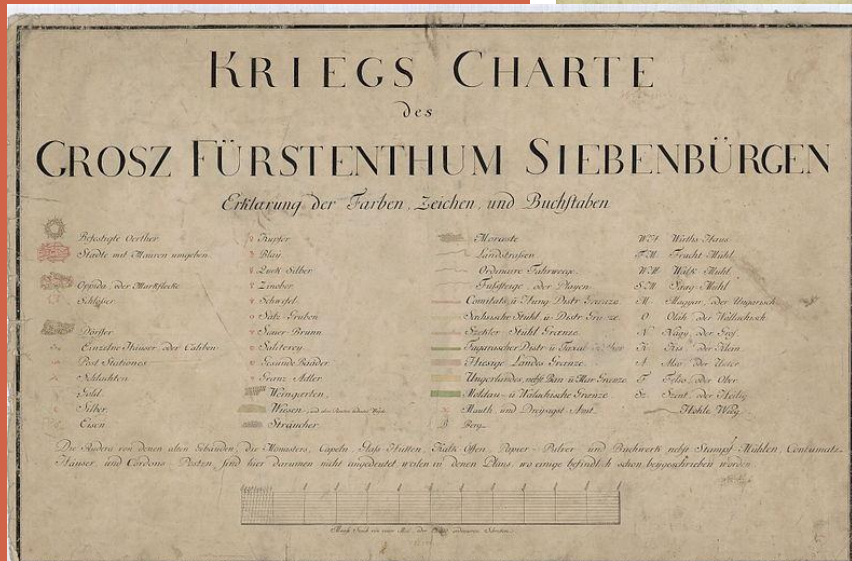 KRIEGS CHARTE
des
GROSZ FÜRSTENTHUM SIEBENBÜRGEN
Erklärung der Farben, Zeichen, und Buchstaben
Befestigte Oerther
Städte mit Mauren umgeben
Oppida, oder Marktflecke
Schlösser
Dörffer
Einzelne Häuser oder Caliben
Post Stationes
Schlachten
Gold
Silber
Eisen
Kupfer
Blay
Zinober
Schwefel
Saltz Gruben
Sauer Brunn
Gesunde Bäader
Granz Adler
Weingärten
Wiesen
Sträucher
Moräste
Landstraßen
Ordinaire Fahrweege
Fußsteige, oder Playen
Comitats u Distr Grænze
Sachsische Stühl u Distr Grænze
Szekler Stühl Grænze
Fagarascher Distr u
Hiesige Landes Grænze
Ungerlandes, nebst Ban u Mar Grænze
Moldau u Walachische Grænze
Mauth und Dreysigst Amt
B Berg
W.H. Wirths Haus
F.M. Frucht Mühl
W.M. Walk Mühl
S.M. Saag Mühl
M Magyar, oder Ungarisch
O Olah, oder Wallachisch
N Nagy, der Gros
K Kis, der Klein
A Also, der Unter
F Felso, der Ober
Sz Szent, der Heilig
Hohle Weeg
Die Rudera von denen alten Gebäuden, die Monasters, Capeln, Glaß Hütten, Kalk Öffen, Papier Pulver und Buchwerk nebst Stampf Mühlen, Contumatz
Häuser, und Cordons Posten, sind hier darumen nicht angedeutet weilen in denen Plans, wo einige befindlich schon beygeschrieben worden